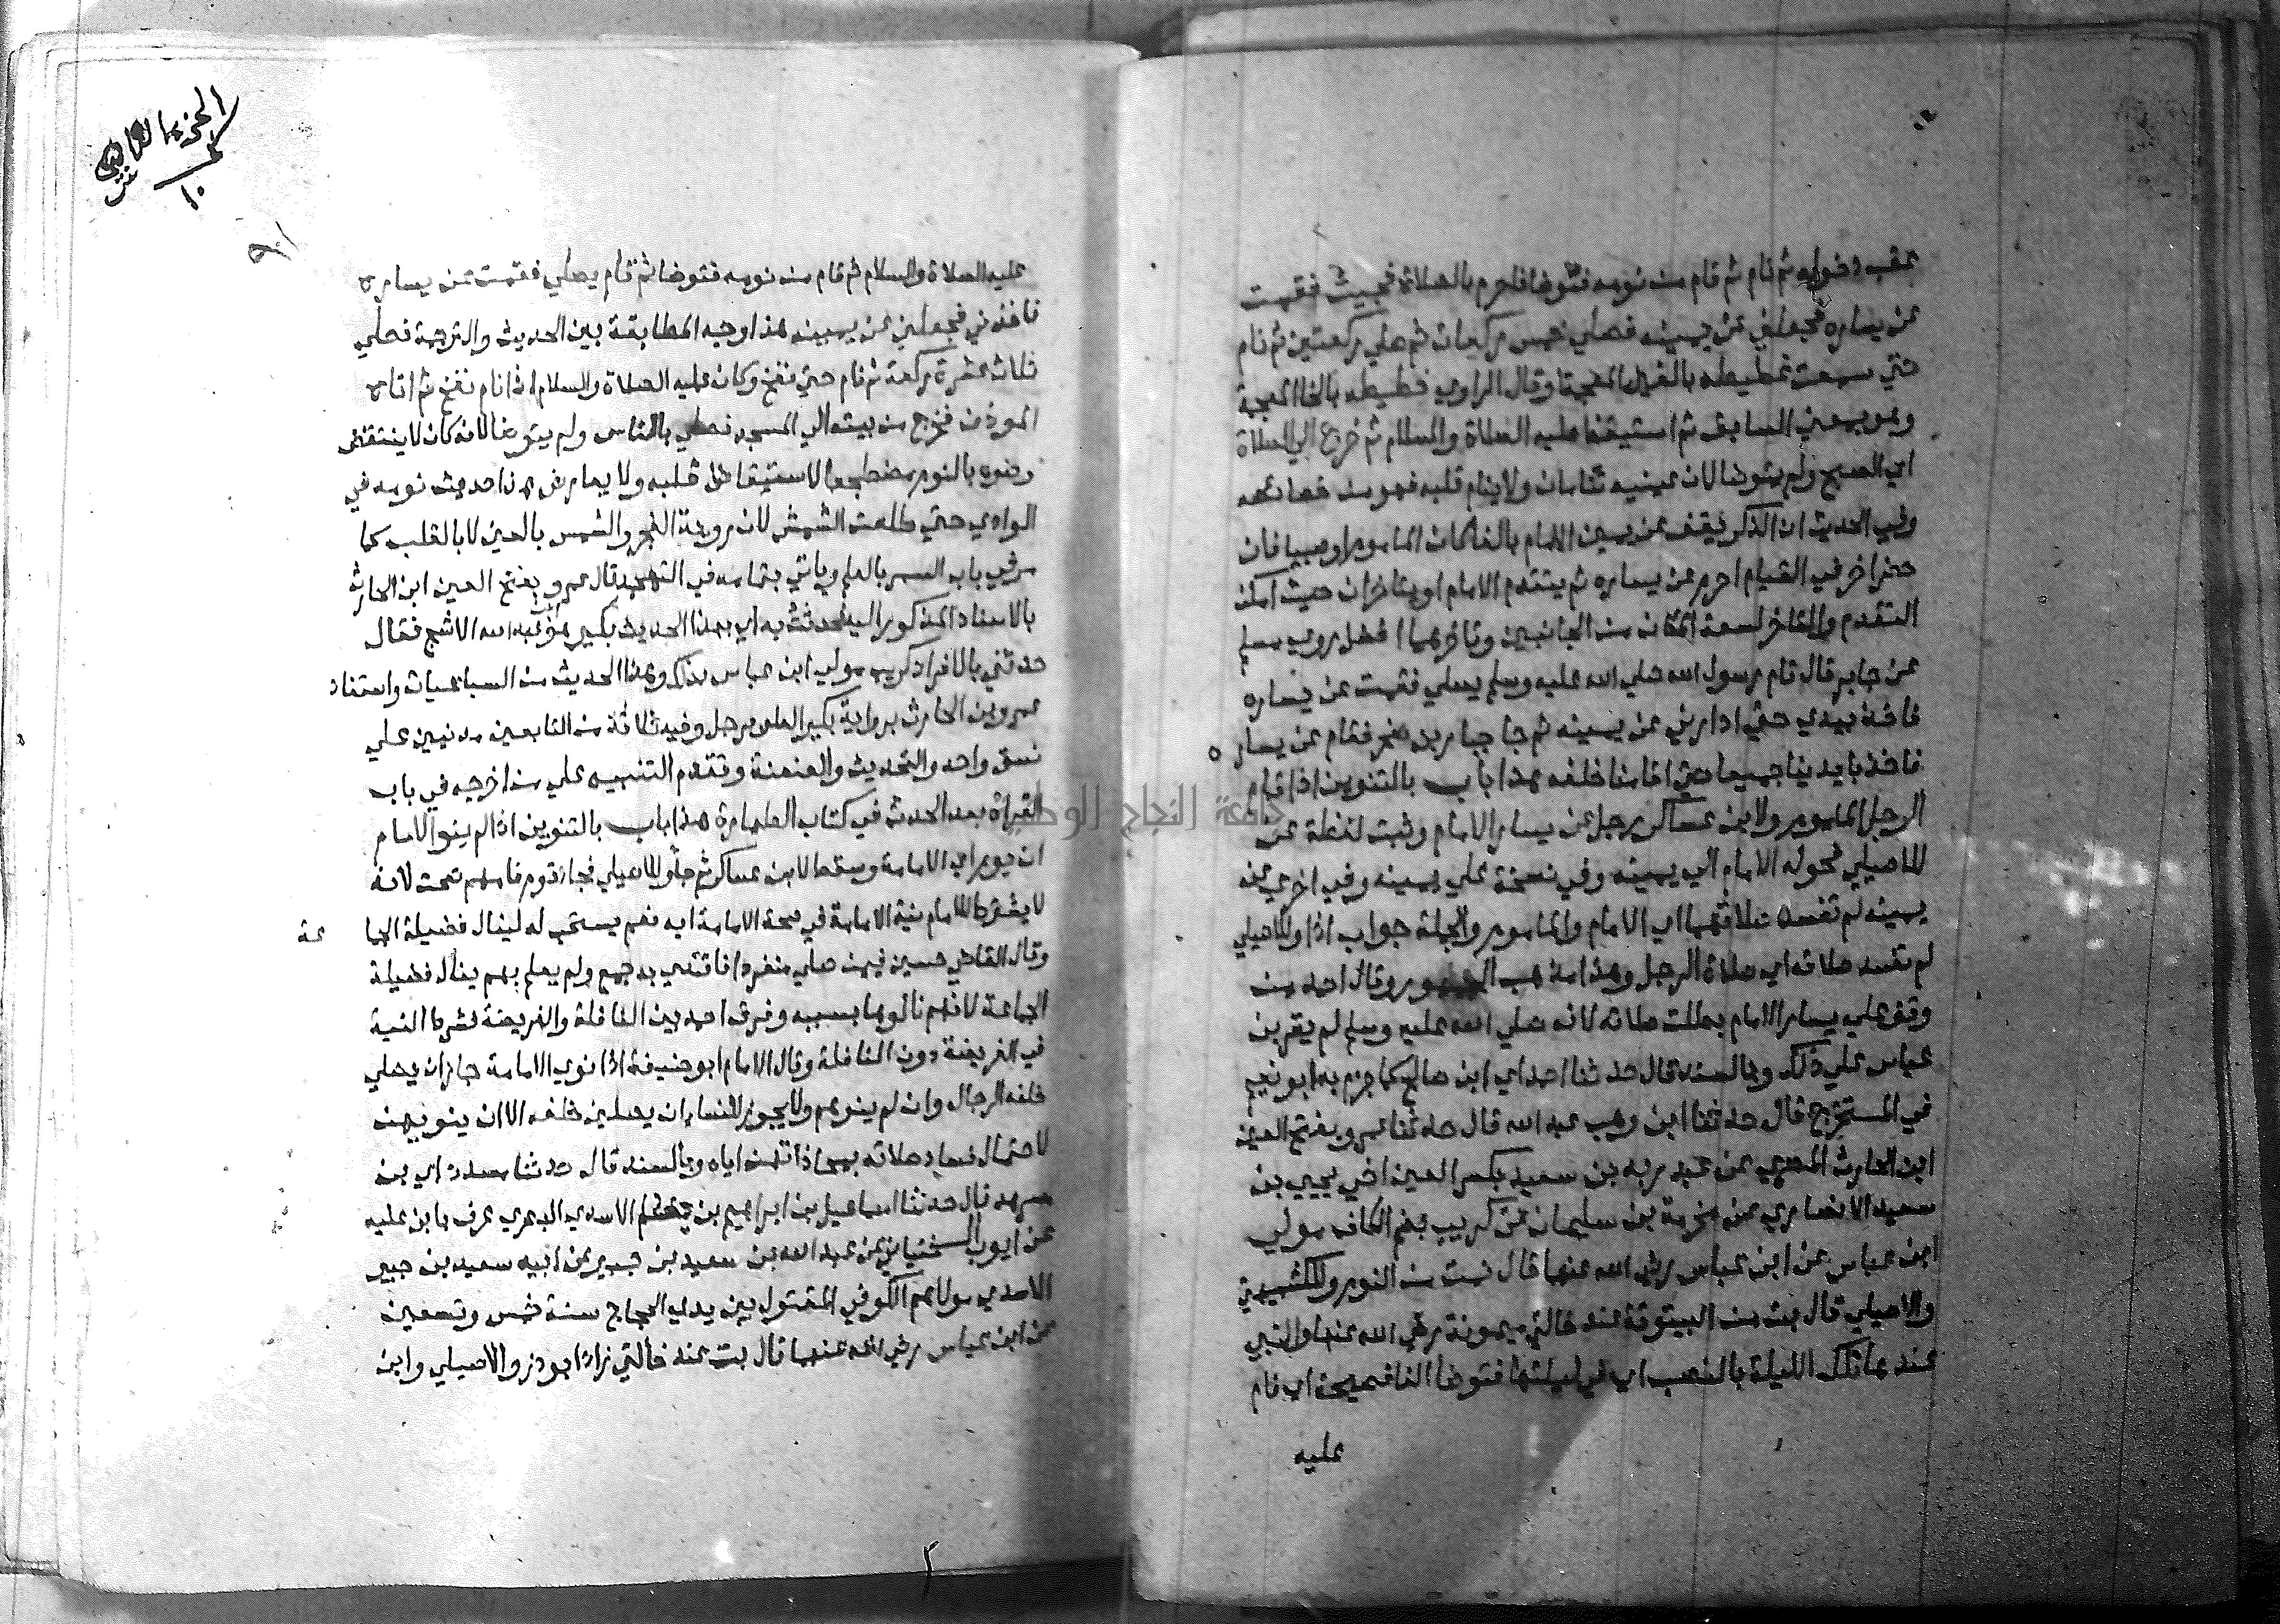 عقب دخوله ثم نام ثم قام من نومه فتوضا فاحرم بالصلاة فجيت فقمت
عن يساره فجعلني عن يمينه فصلي خمس ركعات ثم صلي ركعتين ثم نام
حتي سمعت غطيطه بالغين المعجمة او قال الراوي خطيطه بالخا المعجمة
وهو بمعني السابق ثم استيقظ عليه الصلاة والسلام ثم خرج الي الصلاة
اي الصبح ولم يتوضا لان عينيه تنامان ولا ينام قلبه فهو من خصائصه
وفي الحديث ان الذكر يقف عن يمين الامام بالغا كان الماموم او صبيا فان
حضر اخر في القيام احرم عن يساره ثم يتقدم الامام او يتاخران حيث امكن
التقدم والتاخر لسعة المكان من الجانبين وتاخرهما افضل روي مسلم
عن جابر قال قام رسول الله صلي الله عليه وسلم يصلي فقمت عن يساره
فاخذ بيدي حتي ادارني عن يمينه ثم جا جبار بن صخر فقام عن يساره
فاخذ بايدينا جميعا حتي اقامنا خلفه هذا باب بالتنوين اذا قام
الرجل الماموم ولابن عساكر رجل عن يسار الامام وثبت لفظة عن
للاصيلي فحوله الامام الي يمينه وفي نسخة علي يمينه وفي اخري عن
يمينه لم تفسد صلاتهما اي الامام والماموم والجملة جواب اذا وللاصيلي
لم تفسد صلاته اي صلاة الرجل وهذا مذهب الجمهور وقال احمد من
وقف علي يسار الامام بطلت صلاته لانه صلي الله عليه وسلم لم يقر بن
عباس علي ذلك وبالسند قال حدثنا احمد اي ابن صالح كما جزم به ابو نعيم
في المستخرج قال حدثنا ابن وهب عبد الله قال حدثنا عمرو بفتح العين
ابن الحارث المصري عن عبد ربه بن سعيد بكسر العين اخي يحيي بن
سعيد الانصاري عن مخرمة بن سليمان عن كريب بضم الكاف مولي
ابن عباس عن ابن عباس رضي الله عنهما قال نمت من النوم وللكشميهني
والاصيلي قال بت من البيتوتة عند خالتي ميمونة رضي الله عنها والنبي
عندها تلك الليلة بالنصب اي في ليلتها فتوضا الفا فصيحة اي نام
عليه
عليه الصلاة والسلام ثم قام من نومه فتوضا ثم قام يصلي فقمت عن يساره
فاخذني فجعلني عن يمينه هذا وجه المطابقة بين الحديث والترجمة فصلي
ثلاث عشرة ركعة ثم نام حتي نفخ وكان عليه الصلاة والسلام اذا نام نفخ ثم اتاه
الموذن فخرج من بيته الي المسجد فصلي بالناس ولم يتوضا لانه كان لا ينتقض
وضوه بالنوم مضطجعا لاستيقاظ قلبه ولا يعارض هذا حديث نومه في
الوادي حتي طلعت الشمس لان روية الفجر والشمس بالعين لا بالقلب كما
مر في باب السمر بالعلم وياتي بتمامه في التهجد قال عمرو بفتح العين ابن الحارث
بالاسناد المذكور اليه فحدثت به اي بهذا الحديث بكير بن عبد الله الاشج فقال
حدثني بالافراد كريب مولي ابن عباس بذلك وهذا الحديث من السباعيات واستفاد
عمرو بن الحارث برواية بكير العلو برجل وفيه ثلاثة من التابعين مدنيين علي
نسق واحد والتحديث والعنعنة وتقدم التنبيه علي من اخرجه في باب
القراة بعد الحدث في كتاب الطهارة هذا باب بالتنوين اذا لم ينو الامام
ان يوم اي الامامة وسقط لابن عساكر ثم جا وللاصيلي فجا قوم فامهم صحت لانه
لا يشترط للامام نية الامامة في صحة الامامة ابه نعم يستحب له لينال فضيلة الجما عة
وقال القاضي حسين فيمن صلي منفردا فاقتدي به جمع ولم يعلم بهم ينال فضيلة
الجماعة لانهم نالوها بسببه وفرق احمد بين النافلة والفريضة فشرط النية
في الفريضة دون النافلة وقال الامام ابو حنيفة اذا نوي الامامة جاز ان يصلي
خلفه الرجال وان لم ينوهم ولا يجوز للنسا ان يصلين خلفه الا ان ينويهن
لاحتمال فساد صلاته بمحاذاتهن اياه وبالسند قال حدثنا مسدد اي بن
مسرهد قال حدثنا اسماعيل بن ابراهيم بن مقسم الاسدي البصري عرف بابن عليه
عن ايوب السختياني عن عبد الله بن سعيد بن جبير عن ابيه سعيد بن جبير
الاسدي مولاهم الكوفي المقتول بين يدي الحجاج سنة خمس وتسعين
عن ابن عباس رضي الله عنهما قال بت عند خالتي زاد ابو ذر والاصيلي وابن
جامعة النجاح الوطنية